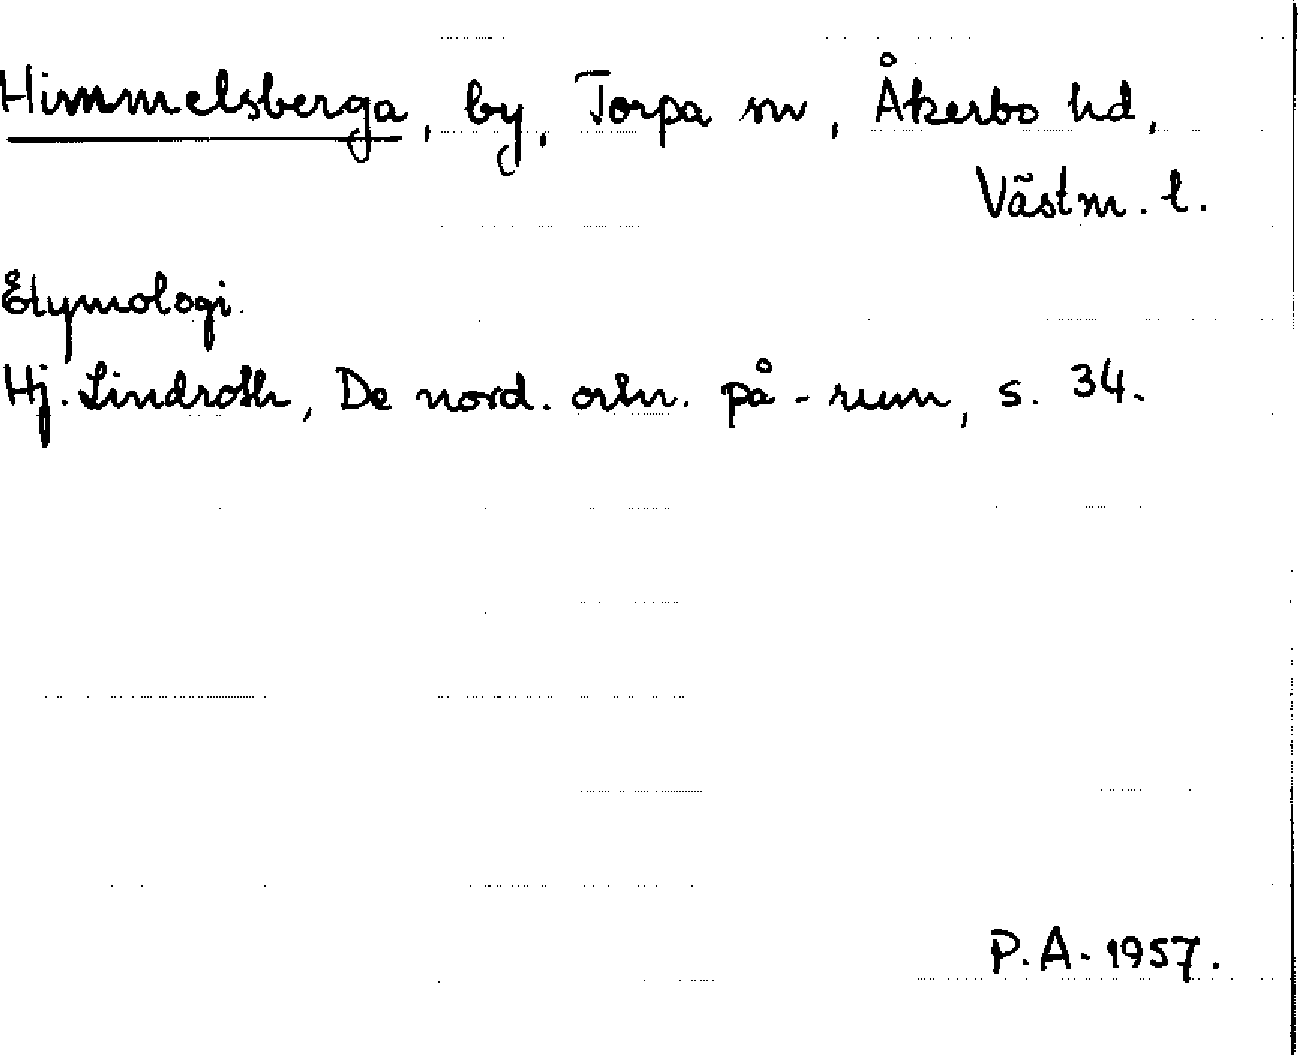 Himmelsberga, by, Torpa sn, Åkerbo hd,
Västm. l.
Etymologi.
Hj. Lindroth, De nord. ortn. på -rum, s. 34.
P.A. 1957.